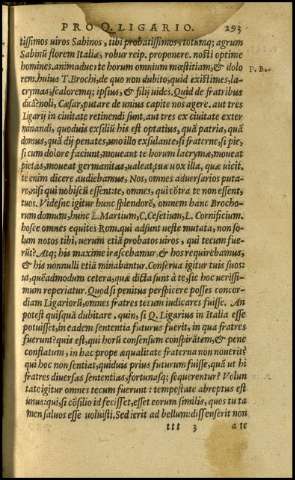 PRO Q. LIGARIO. 293
tissimos uiros Sabinos, tibi probatissimos, totumq; agrum
Sabinũ florem Italiæ, robur reip. proponere. nosti optime
homines. animaduerte horum omnium mœstitiam, & dolo
rem. huius T. Brochi, de quo non dubito, quid existimes: la-
P. B.
crymas, squaloremq; ipsius, & filij uides. Quid de fratribus
dicã? noli, Cæsar, putare de unius capite nos agere. aut tres
Ligarij in ciuitate retinendi sunt, aut tres ex ciuitate exter
minandi. quoduis exsiliũ his est optatius, quã patria, quã
domus, quã dij penates, uno illo exsulante. si fraterne, si pie,
si cum dolore faciunt, moueant te horum lacrymæ, moueat
pietas, moueat germanitas, ualeat tua uox illa, quæ uicit.
te enim dicere audiebamus, Nos omnes aduersarios puta-
re, nisi qui nobiscũ essent: te, omnes, qui cõtra te non essent,
tuos. Videsne igitur hunc splendorẽ, omnem hanc Brocho-
rum domum, hunc L. Martium, C. Cesetium, L. Cornificium.
hosce omnes equites Rom. qui adsunt ueste mutata, non so-
lum notos tibi, uerum etiã probatos uiros, qui tecum fue-
rũt? Atq; his maxime irascebamur, & hos requirebamus,
& his nonnulli etiã minabantur. Conserua igitur tuis suos:
ut, quẽadmodum cetera, quæ dicta sunt à te, sic hoc ueriss-
mum reperiatur. Quod si penitus perspicere posses concor-
diam Ligariorũ, omnes fratres tecum iudicares fuisse. An
potest quisquã dubitare, quin, si Q. Ligarius in Italia esse
potuisset, in eadem sententia futurus fuerit, in qua fratres
fuerunt? quis est, qui horũ consensum conspirãtem, & pene
conflatum, in hac prope æqualitate fraterna non nouerit?
qui hoc non sentiat, quiduis prius futurum fuisse, quã ut hi
fratres diuersas sententias, fortunasq; sequerentur? Volun
tate igitur omnes tecum fuerunt: tempestate abreptus est
unus: qui si cõsilio id fecisset, esset eorum similis, quos tu ta
men saluos esse uoluisti. Sed ierit ad bellum: dissenserit non
ttt 3 a te